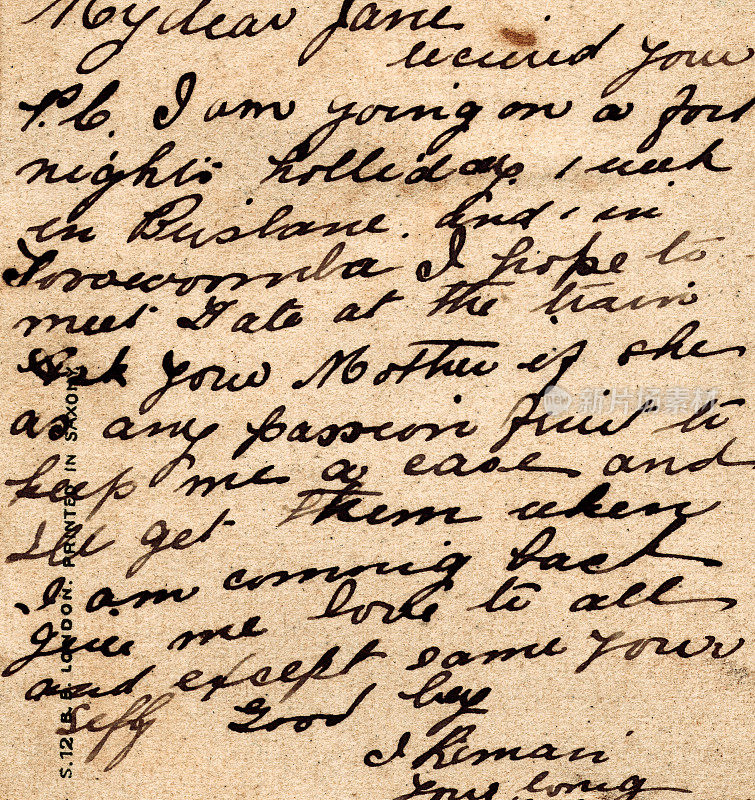 My dear Jane
recieved your
P.C. I am going on a fort
nights holliday. 1 week
in Brisbane. and 1 in
Toowoomba I hope to
meet Kate at the train
Ask your Mother if she
as any passion fruit to
keep me a case and
Ill get them when
I am coming back
Give me love to all
and except same your
Seffy Good bye
I Remain
Your loving
S.12 B.B. LONDON. PRINTED IN SAXONY
new 新片场素材